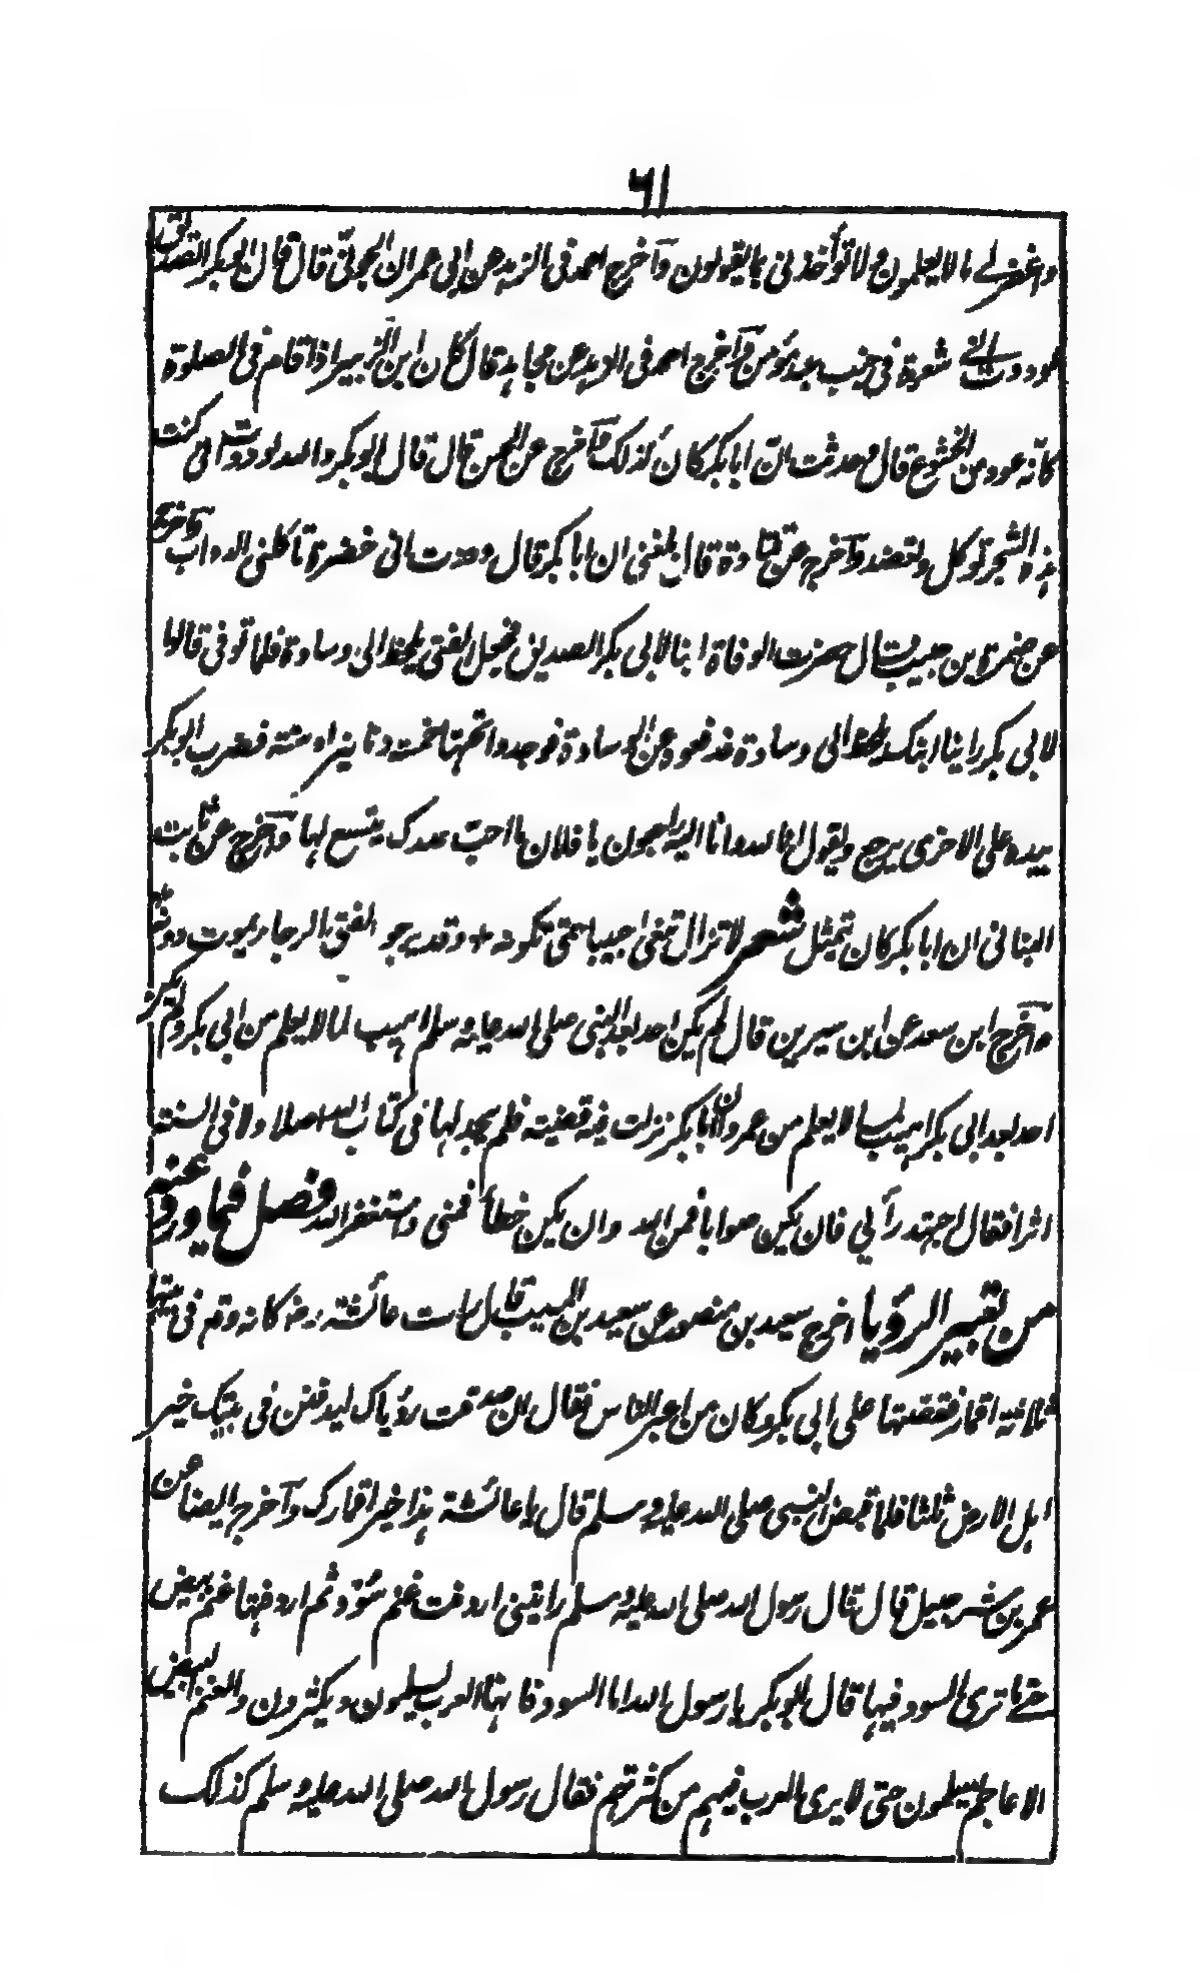 ٦١
واغفر لے ما لا يعلمون ولا تؤاخذنی بما يقولون وآخرج احمد فی الزہد عن ابی عمران الجونی قال قال ابو بکر الصدیق
لوددت انے شعرة فی جنب عبد مؤمن وآخرج احمد فی الزہد عن مجاہد قال کان ابن الزبیر اذا قام فی الصلوة
کانہ عود من الخشوع قال وحدثت ان ابا بکر کان کذلک وآخرج عن الحسن قال قال ابو بکر واللہ لوددت انی کنت
ہذہ الشجرة توکل وتعضد وآخرج عن قتادة قال بلغنی ان ابا بکر قال وددت انی خضرة تاکلنی الدواب وآخرج
عن ضمرة بن حبیب قال حضرت الوفاة ابنا لابی بکر الصدیق فجعل الفتی یلحظ الی وسادة فلما توفی قالوا
لابی بکر راینا ابنک یلحظ الی وسادة فدفعوہ عن الوسادة فوجدوا تحتہا خمسة دنانیر او ستة فضرب ابو بکر
بیدہ علی الاخری یرجع ویقول انا للہ وانا الیہ راجعون یا فلان ما احسب جلدک یتسع لہا وآخرج عن ثابت
البنانی ان ابا بکر کان یتمثل شعر لا تزال تنعی حبیبا حتی تکونہ + وقد یرجو الفتی الرجا یموت دونہ
وآخرج ابن سعد عن ابن سیرین قال لم یکن احد بعد النبی صلی اللہ علیہ وسلم اہیب لما لا یعلم من ابی بکر ولم یکن
احد بعد ابی بکر اہیب لما لا یعلم من عمر وان ابا بکر نزلت فیہ قضیتہ فلم یجد لہا فی کتاب اللہ اصلا ولا فی السنتہ
اثرا فقال اجتہد رأیی فان یکن صوابا فمن اللہ وان یکن خطأ فمنی واستغفر اللہ فصل فیما ورد عنہ
من تعبیر الرؤیا اخرج سعید بن منصور عن سعید بن المسیب قال رات عائشتہ رضہ کانہ وقع فی بیتہا
ثلاثتہ اقمار فقصتہا علی ابی بکر وکان من اعبر الناس فقال ان صدقت رؤیاک لیدفنن فی بیتک خیر
اہل الارض ثلثا فلما قبض النبی صلی اللہ علیہ وسلم قال یا عائشتہ ہذا خیر اقمارک وآخرج ایضا عن
عمر بن شرحبیل قال قال رسول اللہ صلی اللہ علیہ وسلم رایتنی اردفت غنم سود ثم اردفتہا غنم بیض
حتے ما تری السود فیہا فقال ابو بکر یا رسول اللہ اما السود فانہا العرب یسلمون ویکثرون والغنم البیض
الاعاجم یسلمون حتی لا یری العرب فیہم من کثرتہم فقال رسول اللہ صلی اللہ علیہ وسلم کذلک